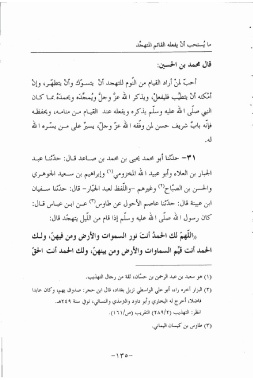 ما يُستحب أنْ يفعله القائم للتهجّد
قال محمد بن الحسين:
أحبّ لمنْ أراد القيام من النوم للتهجد أنْ يتسوّك وأنْ يتطهّر، وإنْ
أمكنه أنْ يتطيّب فليفعل، ويذكر الله عزّ وجلّ ويُمجّده ويحمدَه بما كان
النبي صلّى الله عليه وسلّم يذكره ويفعله عند القيام من منامه، ويحفظه
فإنّه بابٌ شريف حسن لمن وفّقه الله عزّ وجلّ، يسيرٌ على من يسّره الله
له.
٣١- حدثنا أبو محمد يحيى بن محمد بن صاعد قال: حدثنا عبد
الجبار بن العلاء وأبو عبيد الله المخزومي(١) وإبراهيم بن سعيد الجوهري
والحسن بن الصبّاح(٢) وغيرهم -واللّفظ لعبد الجبّار- قال: حدثنا سفيان
ابن عيينة قال: حدثنا عاصم الأحول عن طاوس(٣) عن ابن عباس قال:
كان رسول الله صلّى الله عليه وسلّم إذا قام من اللّيل يتهجّد قال:
«اللّهمّ لك الحمدُ أنت نور السموات والأرض ومن فيهنّ، ولك
الحمد أنت قيّم السماوات والأرض ومن فيهنّ، ولك الحمد أنت الحقّ
(١) هو سعيد بن عبد الرحمن بن حسّان، ثقة من رجال التهذيب.
(٢) البزار آخره راء، أبو علي الواسطي نزيل بغداد، قال ابن حجر: صدوق يهم، وكان عابدا
فاضلا، أخرج له البخاري وأبو داود والترمذي والنسائي، توفي سنة ٢٤٩هـ.
انظر: التهذيب (٢٨٩/٢) التقريب (ص/١٦١).
(٣) طاوس بن كيسان اليماني.
-١٣٥-